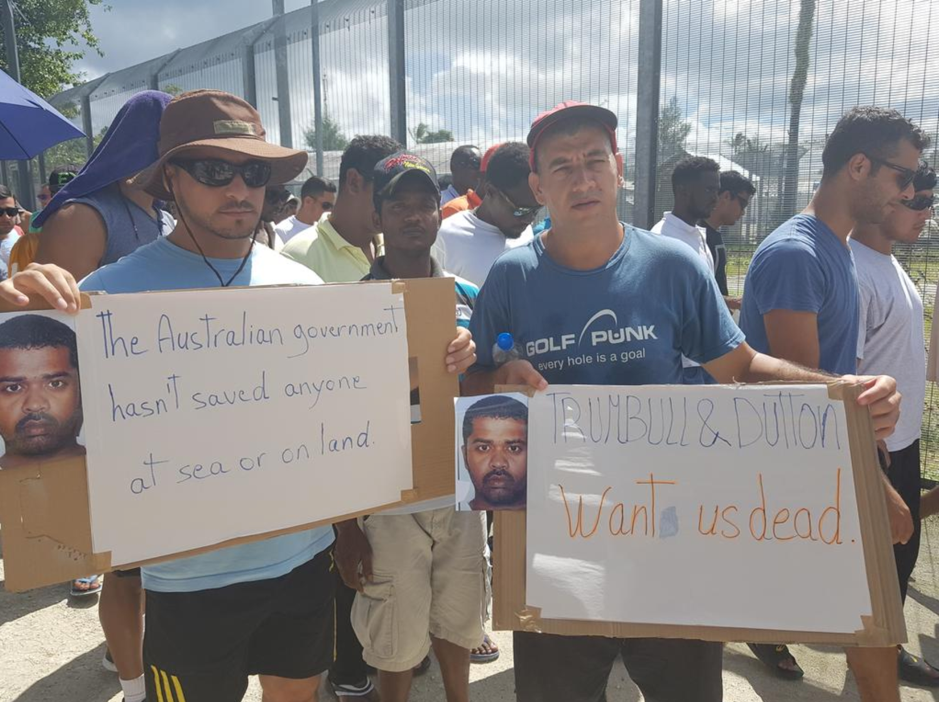 The Australian government
hasn't saved anyone
at sea or on land.
GOLF PUNK
every hole is a goal
TRUMBULL & DUTTON
Want us dead.